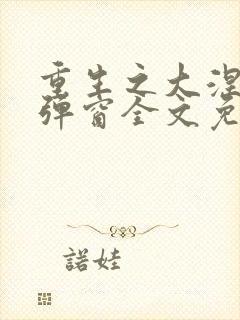 重生之大涅
弹窗全文免
諾娃